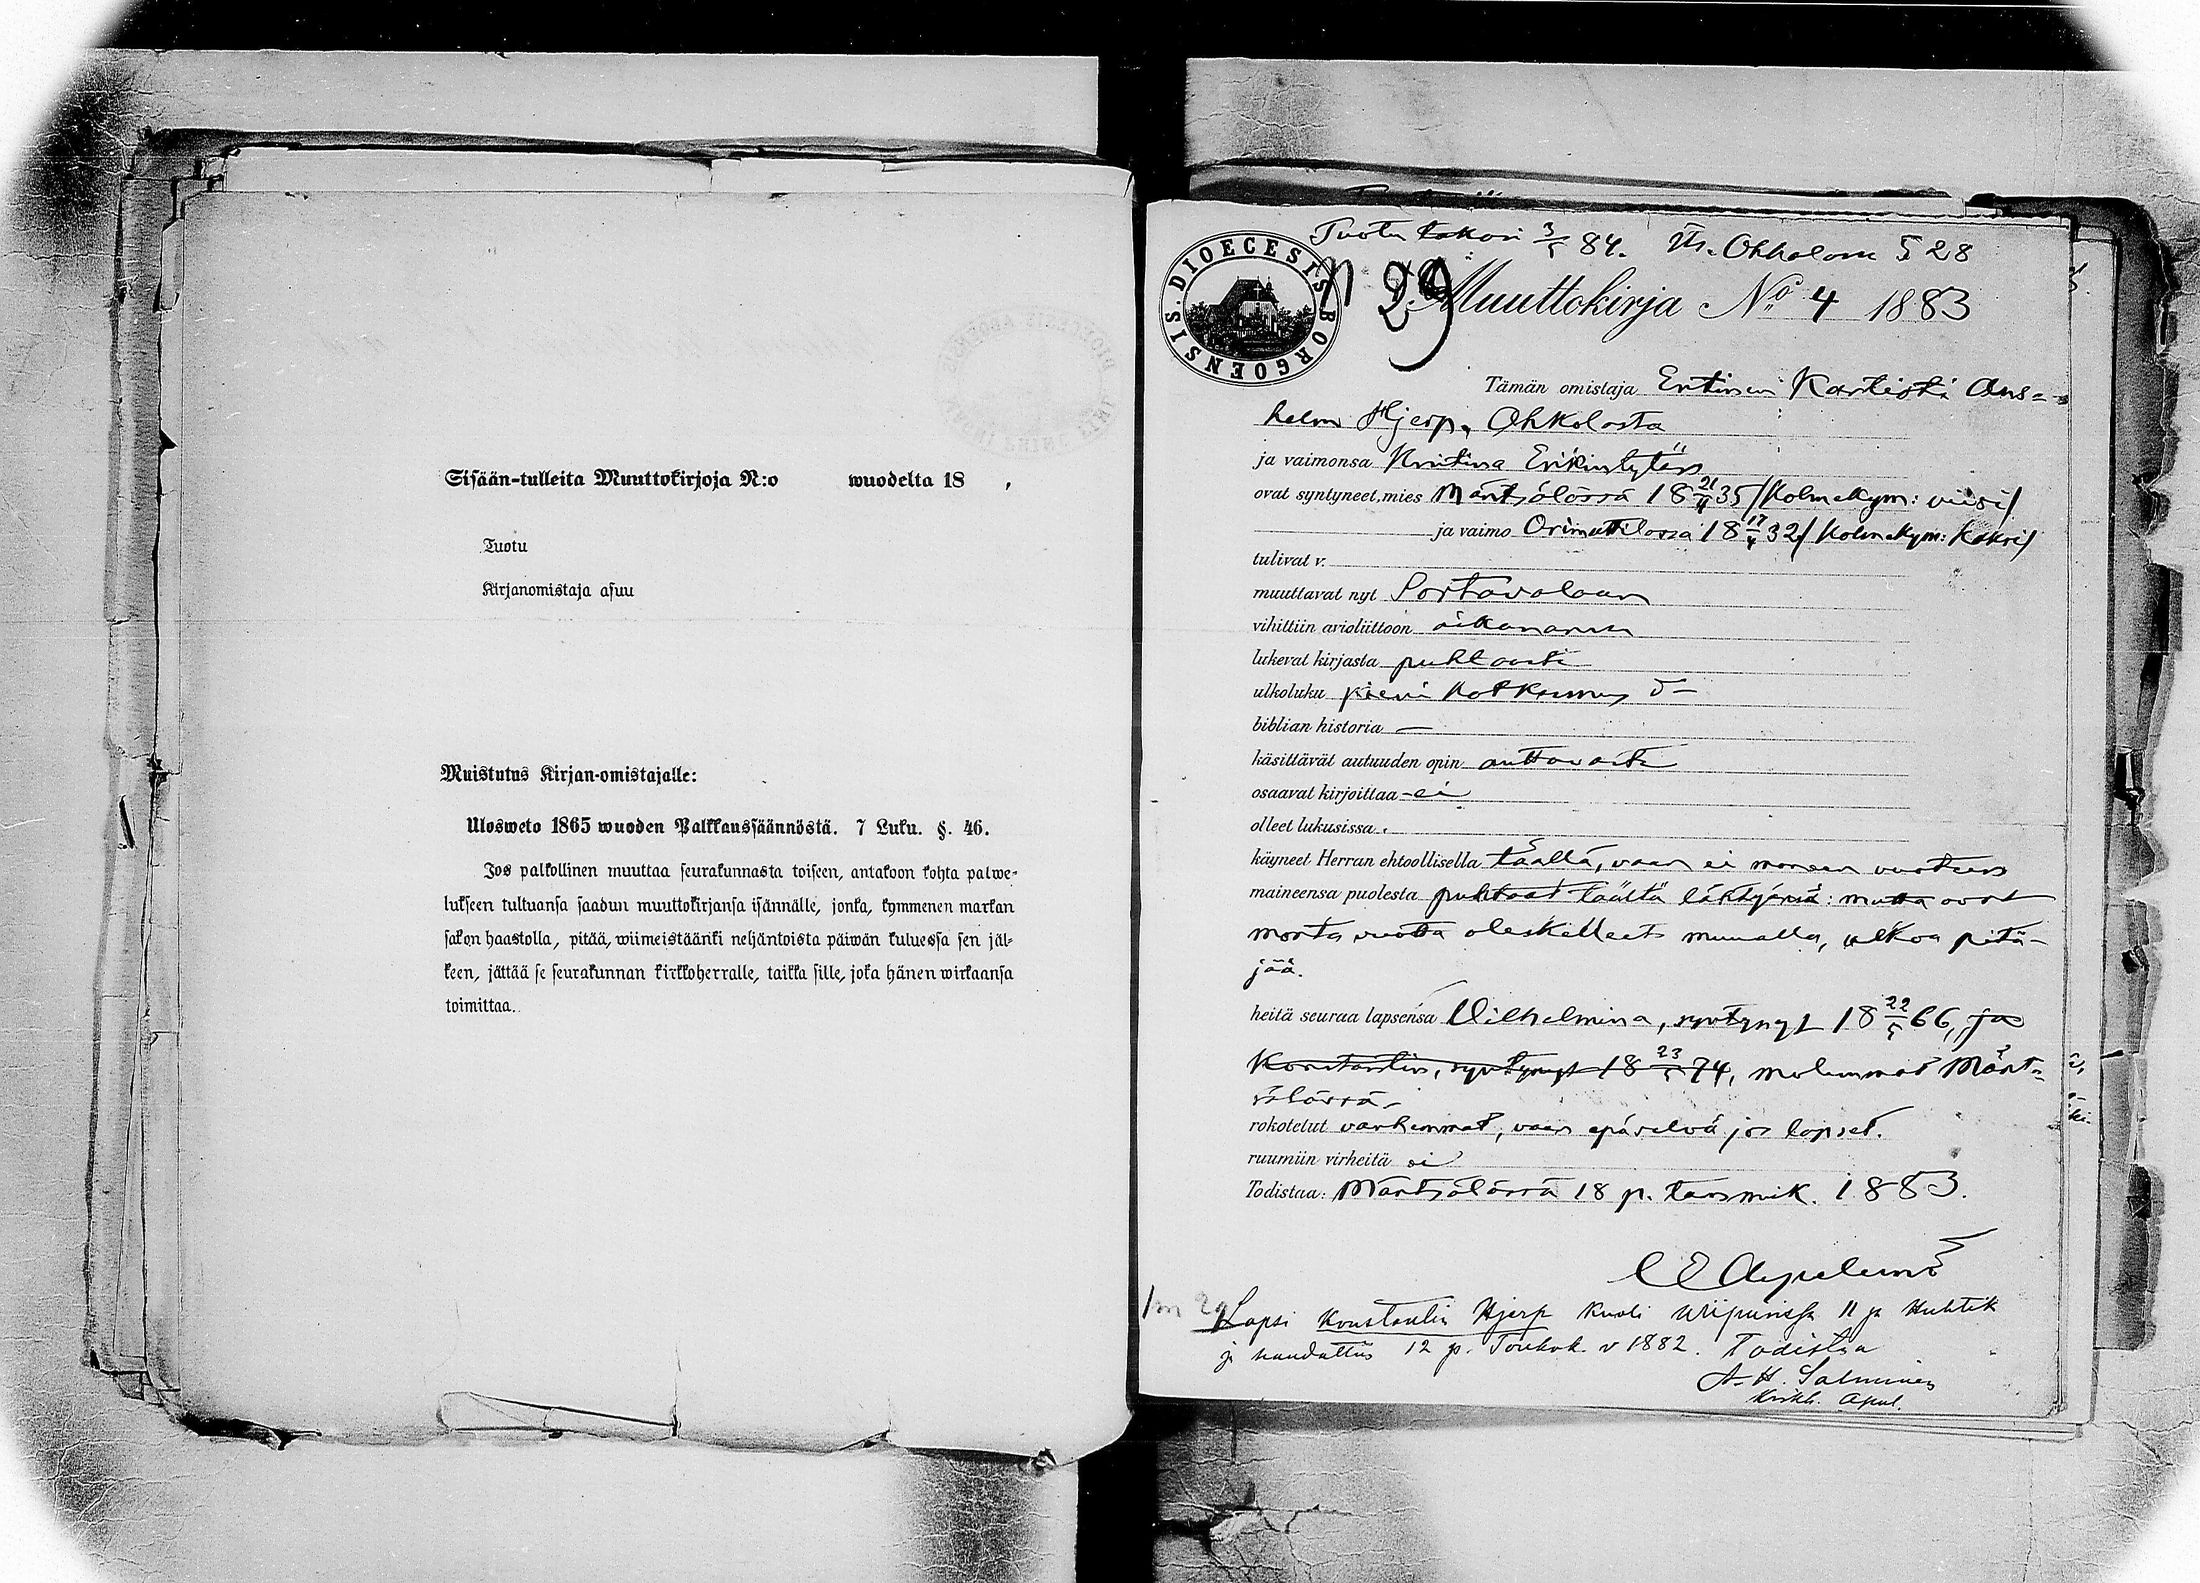 Sisään-tulleita Muuttokirjoja N:o wuodelta 18 ,
Tuotu
Kirjanomistaja asuu
Muistutus Kirjan-omistajalle:
Ulosweto 1865 wuoden Palkkaussäännöstä. 7 Luku. §. 46.
Jos palkollinen muuttaa seurakunnasta toiseen, antakoon kohta palwe-
lukseen tultuansa saadun muuttokirjansa isännälle, jonka, kymmenen markan
sakon haastolla, pitää, wiimeistäänki neljäntoista päiwän kuluessa sen jäl-
keen, jättää se seurakunnan kirkkoherralle, taikka sille, joka hänen wirkaansa
toimittaa.
Tuotu takasi 3/5 84. Ohkolam 528
SIS. DIOECESIS BORGOENSIS
n 29
Muuttokirja No 4 1883
Tämän omistaja Entinen Kartesti Ans-
helm Hjerp, Ohkolasta
ja vaimonsa Kristina Erikintytär
ovat syntyneet, mies Mäntsälässä 18 21/11 35 /Kolmekym: viisi/
ja vaimo Orimattilassa 18 17/4 32 /Kolmekym: kaksi/
tulivat v.
muuttavat nyt Sortavalaan
vihittiin avioliittoon aikanansa
lukevat kirjasta puhtaasti
ulkoluku pieni katkismus
biblian historia —
käsittävät autuuden opin auttavasti
osaavat kirjoittaa - ei
olleet lukusissa
käyneet Herran ehtoollisella täällä, vaan ei moneen vuoteen
maineensa puolesta puhtaat täältä lähtyänsä: mutta ovat
monta vuotta oleskelleet muualla, ulkoa pitä-
jää.
heitä seuraa lapsensa Vilhelmina, syntynyt 18 22/5 66, ja
Konstantin, syntynyt 18 23/5 74, molemmat Mänt-
sälässä
rokotetut vanhemmat, vaan epäselvä jos lapset.
ruumiin virheitä ei
Todistaa: Mäntsälässä 18 p. tammik. 1883.
Lapsi Konstantin Hjerp kuoli Wiipurissa 11 p Huhtik
ja haudattiin 12 p. Toukok. v 1882. Todistaa
A. H. Salminen
Kirkh. Apul.